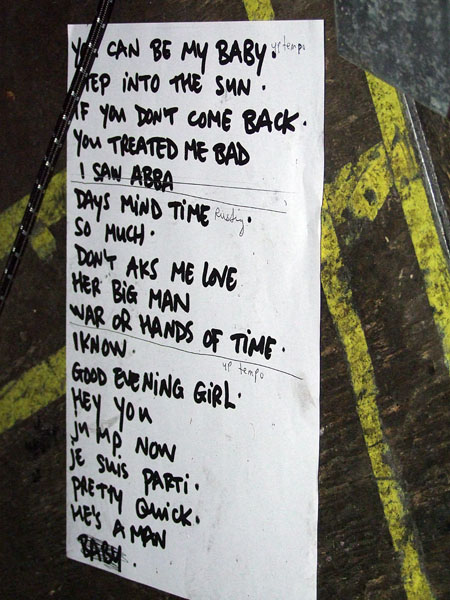 YOU CAN BE MY BABY. up tempo
STEP INTO THE SUN.
IF YOU DON'T COME BACK.
YOU TREATED ME BAD
I SAW ABBA
DAYS MIND TIME Rustig.
SO MUCH.
DON'T AKS ME LOVE
HER BIG MAN
WAR OR HANDS OF TIME.
I KNOW. up tempo
GOOD EVENING GIRL.
HEY YOU
JUMP NOW
JE SUIS PARTI.
PRETTY QUICK.
HE'S A MAN
BABY.